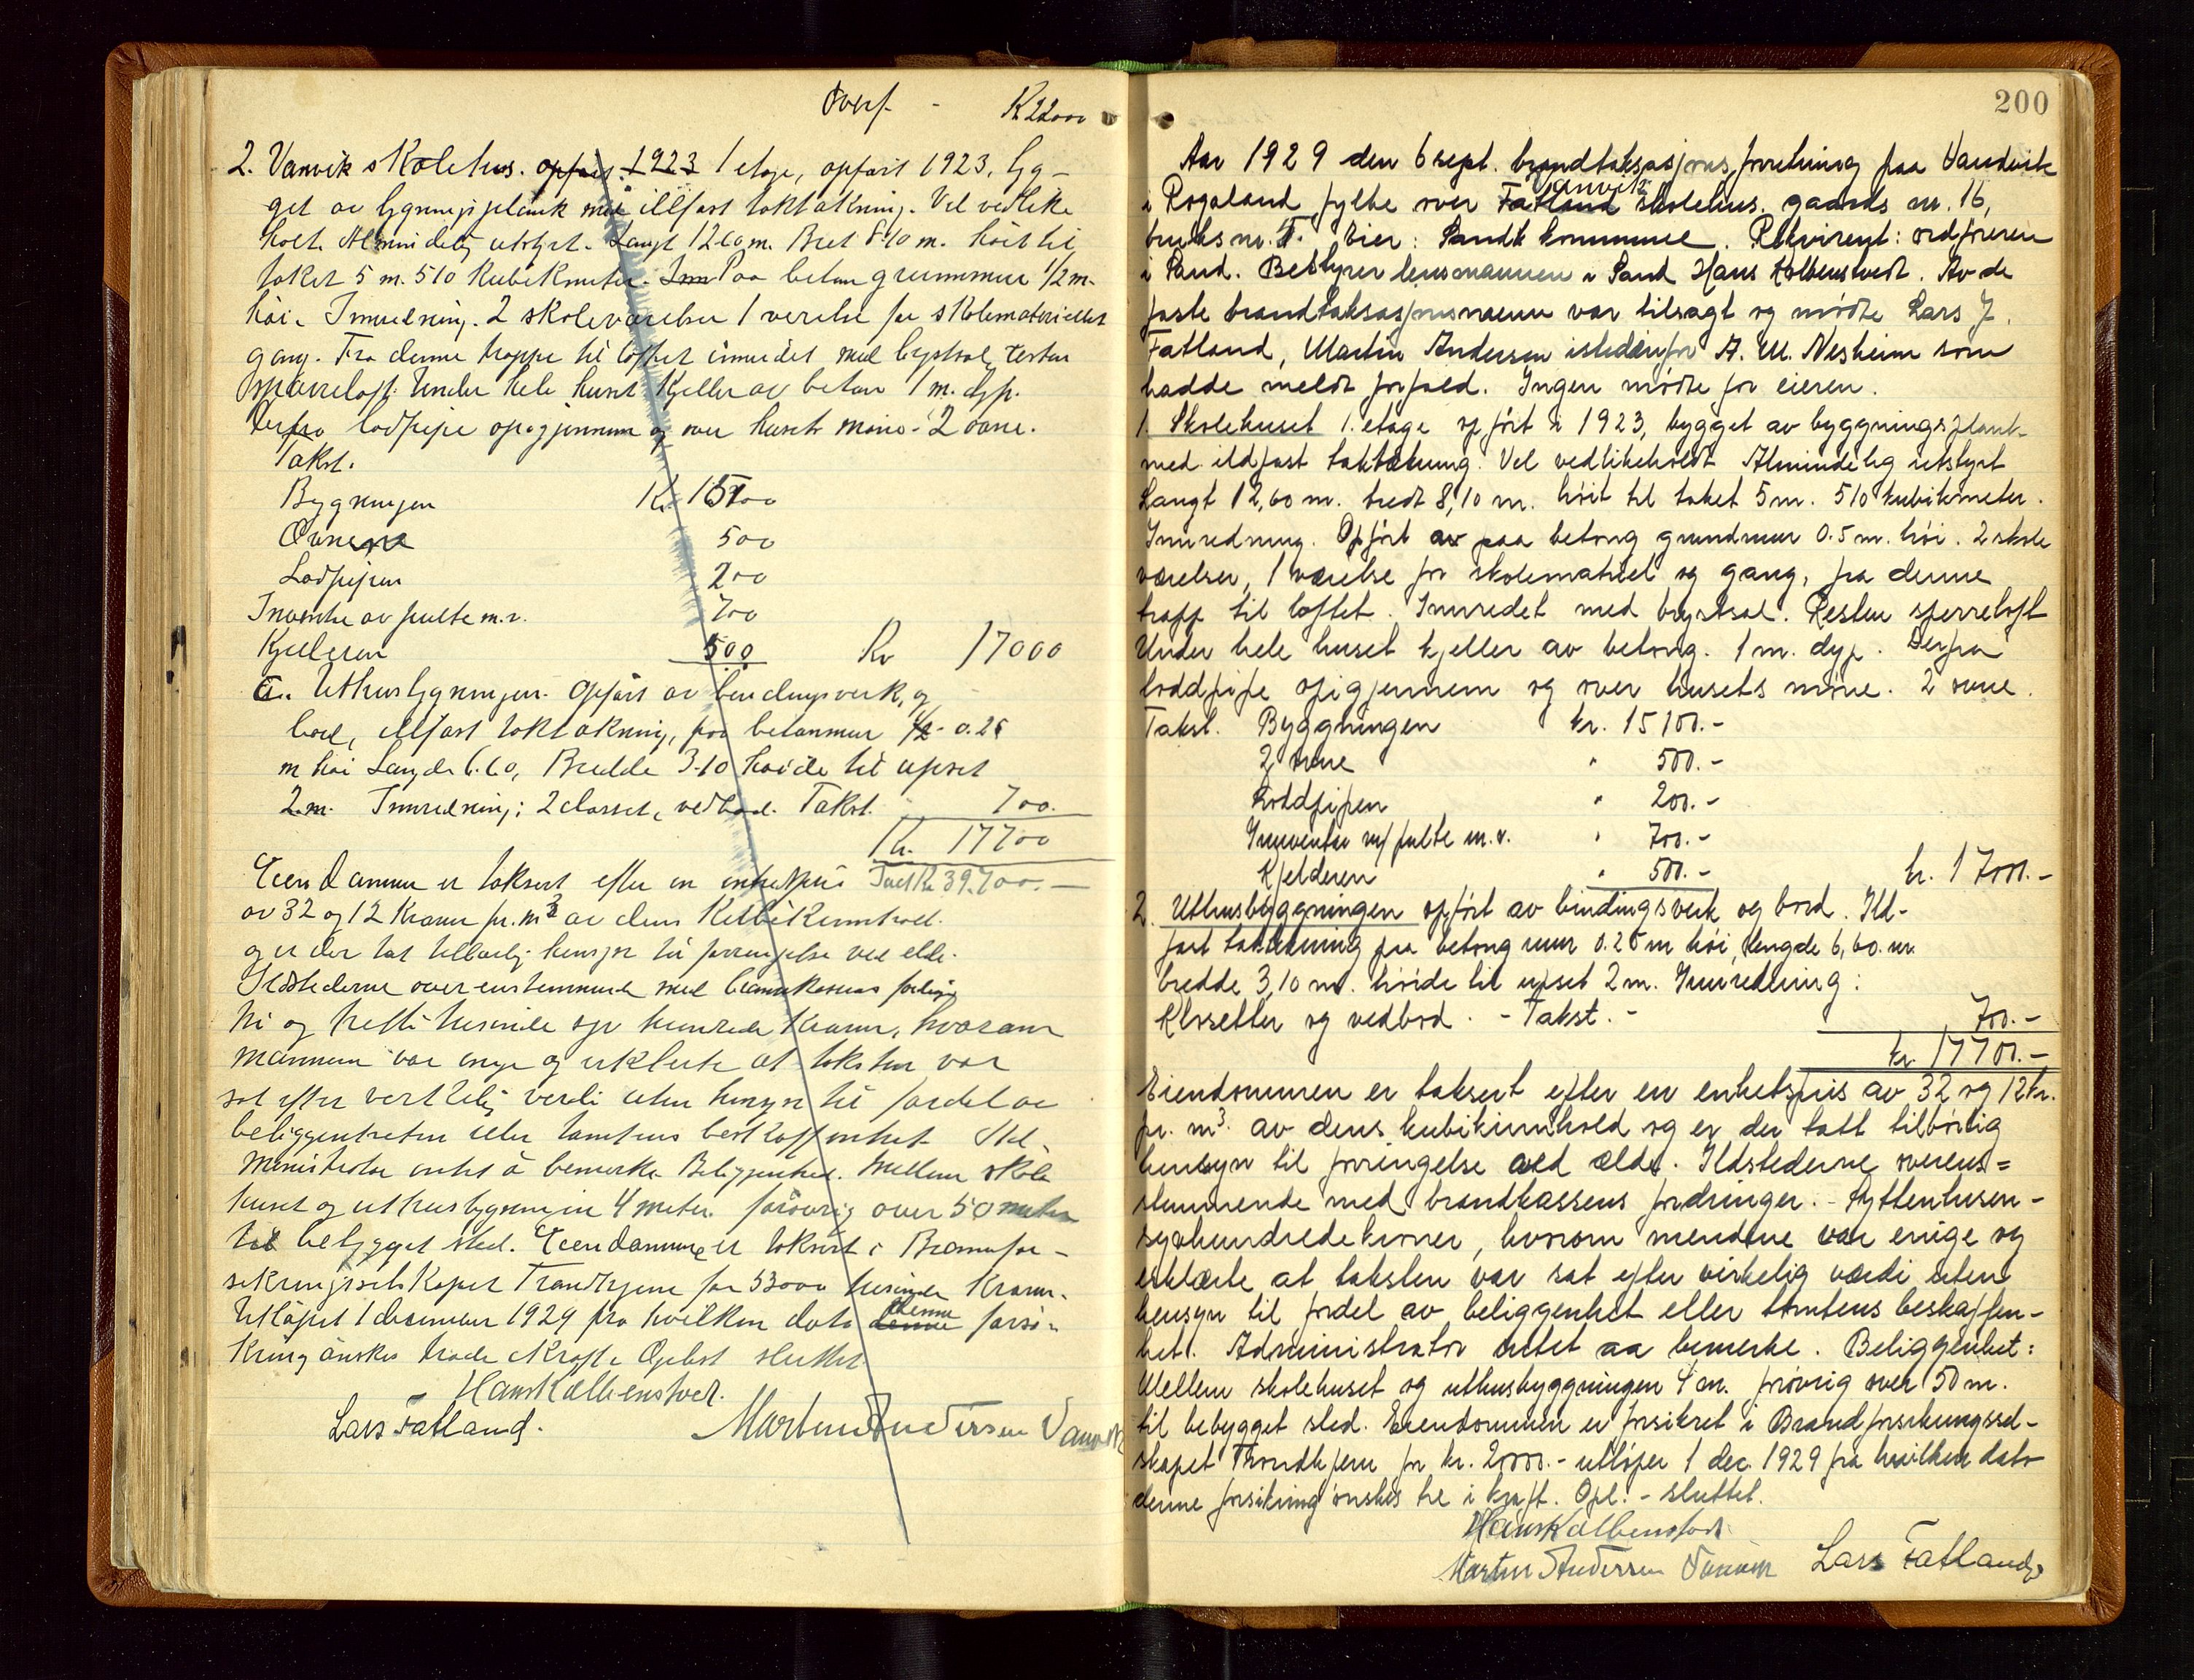 Overf. - K 22000
2. Vanvik skolehus. opført 1923 1 etage, opført 1923, byg-
get av bygningsplank med ildfast taktækning. Vel vedlike
holt. Almindelig utstyrt. Langt 12.60 m. Bret 8.10 m. høit til
taket 5 m. 510 kubikmeter. Inn Paa beton grunnmur 1/2 m.
høi. Innredning. 2 skoleværelser 1 verelse for skolemateriellet
gang. Fra denne trappe til loftet innredet med brystval, resten
sperreloft. Under hele huset kjeller av beton 1 m. dyp.
Derfra lodpipe op igjennem og over husets møne. 2 ovne.
Takst.
Bygningen Kr. 15100
Ovnene 500
Lodpipen 200
Inventar av pulte m.v. 700
Kjelleren 500 Kr 17000
Uthusbygningen. Opført av bindingsverk, og
bord, ildfast taktækning, paa betonmur 1/2 - 0.25
m høi Længde 6.60, Bredde 3.10 høide til upset
2 m. Innredning: 2 closset, vedbod. Takst. 700.
Kr. 17700
Eiendommen er taksert efter en enhetspris Tuet Kr 39.700.-
av 32 og 12 Kroner pr. m3 av dens Kubikinnhold.
og er der tat tilbørlig hensyn til forringelse ved elde.
Ildstederne overenstemmende med brannkassens fordringer
ni og tretti tusinde syv hundrede Kroner, hvorom
mannene var enige og erklærte at taksten var
sat efter verkelig verdi uten hensyn til fordel av
beliggenheten eller tomtens beskaffenhet Ad-
ministrator intet å bemerke. Beliggenhet. Mellem skole
huset og uthusbygningen 4 meter. forøvrig over 50 meter
til bebygget sted. Eiendommene er taksert i Brannfor-
sikringsselskapet Trondhjem for 53000 tusinde Kroner.
Utløpet 1 december 1929 fra hvilken dato denne denne forsi-
kring ønskes træde i Kraft. Oplest sluttet
Hans Kolbenstvedt.
Lars Fatland. Martin Andersen Vanvik
200
Aar 1929 den 6 sept. brandtaksasjonsforretning paa Vandvik
Vanvik
i Rogaland fylke over Fatland skolehus. gaards nr. 16,
bruks nr. 5. Eier: Sand kommune. Rekvirent: ordføreren
i Sand. Bestyrer lensmannen i Sand Hans Kolbenstvedt. Av de
faste brandtaksasjonsmænn var tilsagt og mødte Lars J.
Fatland, Martin Andersen istedenfor A. M. Nesheim som
hadde meldt forfald. Ingen mødte for eieren.
1. Skolehuset 1. etage opført i 1923, bygget av byggningsplank
med ildfast taktækning. Vel vedlikeholdt Almindelig utstyrt
Langt 12,60 m. bredt 8,10 m. høit til taket 5 m. 510 kubikmeter.
Innredning. Opført av paa betong grundmur 0.5 m. høi. 2 skole
værelser, 1 værelse for skolemateriel og gang, fra denne
trapp til loftet. Innredet med brystval. Resten sperreloft
Under hele huset kjeller av betong. 1 m. dyp. Derfra
loddpipe op igjennem og over husets møne. 2 ovne.
Takst. Byggningen kr. 15100.-
2 ovne " 500.-
Loddpipen " 200.-
Innventar m/ pulte m.v. " 700.-
Kjelderen " 500.- kr. 17000.-
2. Uthusbyggningen opført av bindingsverk og bord. Ild-
fast taktækning paa betong mur 0.25 m høi, længde 6,60. m.
bredde 3,10 m. høide til upset 2 m. Innredning:
Klosetter og vedbod. - Takst. - 700.-
kr. 17700.-
Eiendommen er taksert efter en enhetspris av 32 og 12 kr.
pr. m3. av dens kubikinnhold og er der tatt tilbørlig
hensyn til forringelse ved ælde. Ildstederne overens=
stemmende med brandkassens fordringer. - Syttentusen-
syvhundredekroner, hvorom mendene var enige og
erklærte at taksten var sat efter virkelig værdi uten
hensyn til fordel av beliggenhet eller tomtens beskaffen-
het. Administrator intet aa bemerke. Beliggenhet:
Mellem skolehuset og uthusbyggningen 4 m. forøvrig over 50 m.
til bebygget sted. Eiendommen er forsikret i Brandforsikringssel-
skapet Trondhjem for kr. 20000.- utløper 1 dec. 1929 fra hvilken dato
denne forsikring ønskes træ i kraft. Opl. - sluttet.
Hans Kolbenstvedt.
Martin Andersen Vanvik Lars Fatland